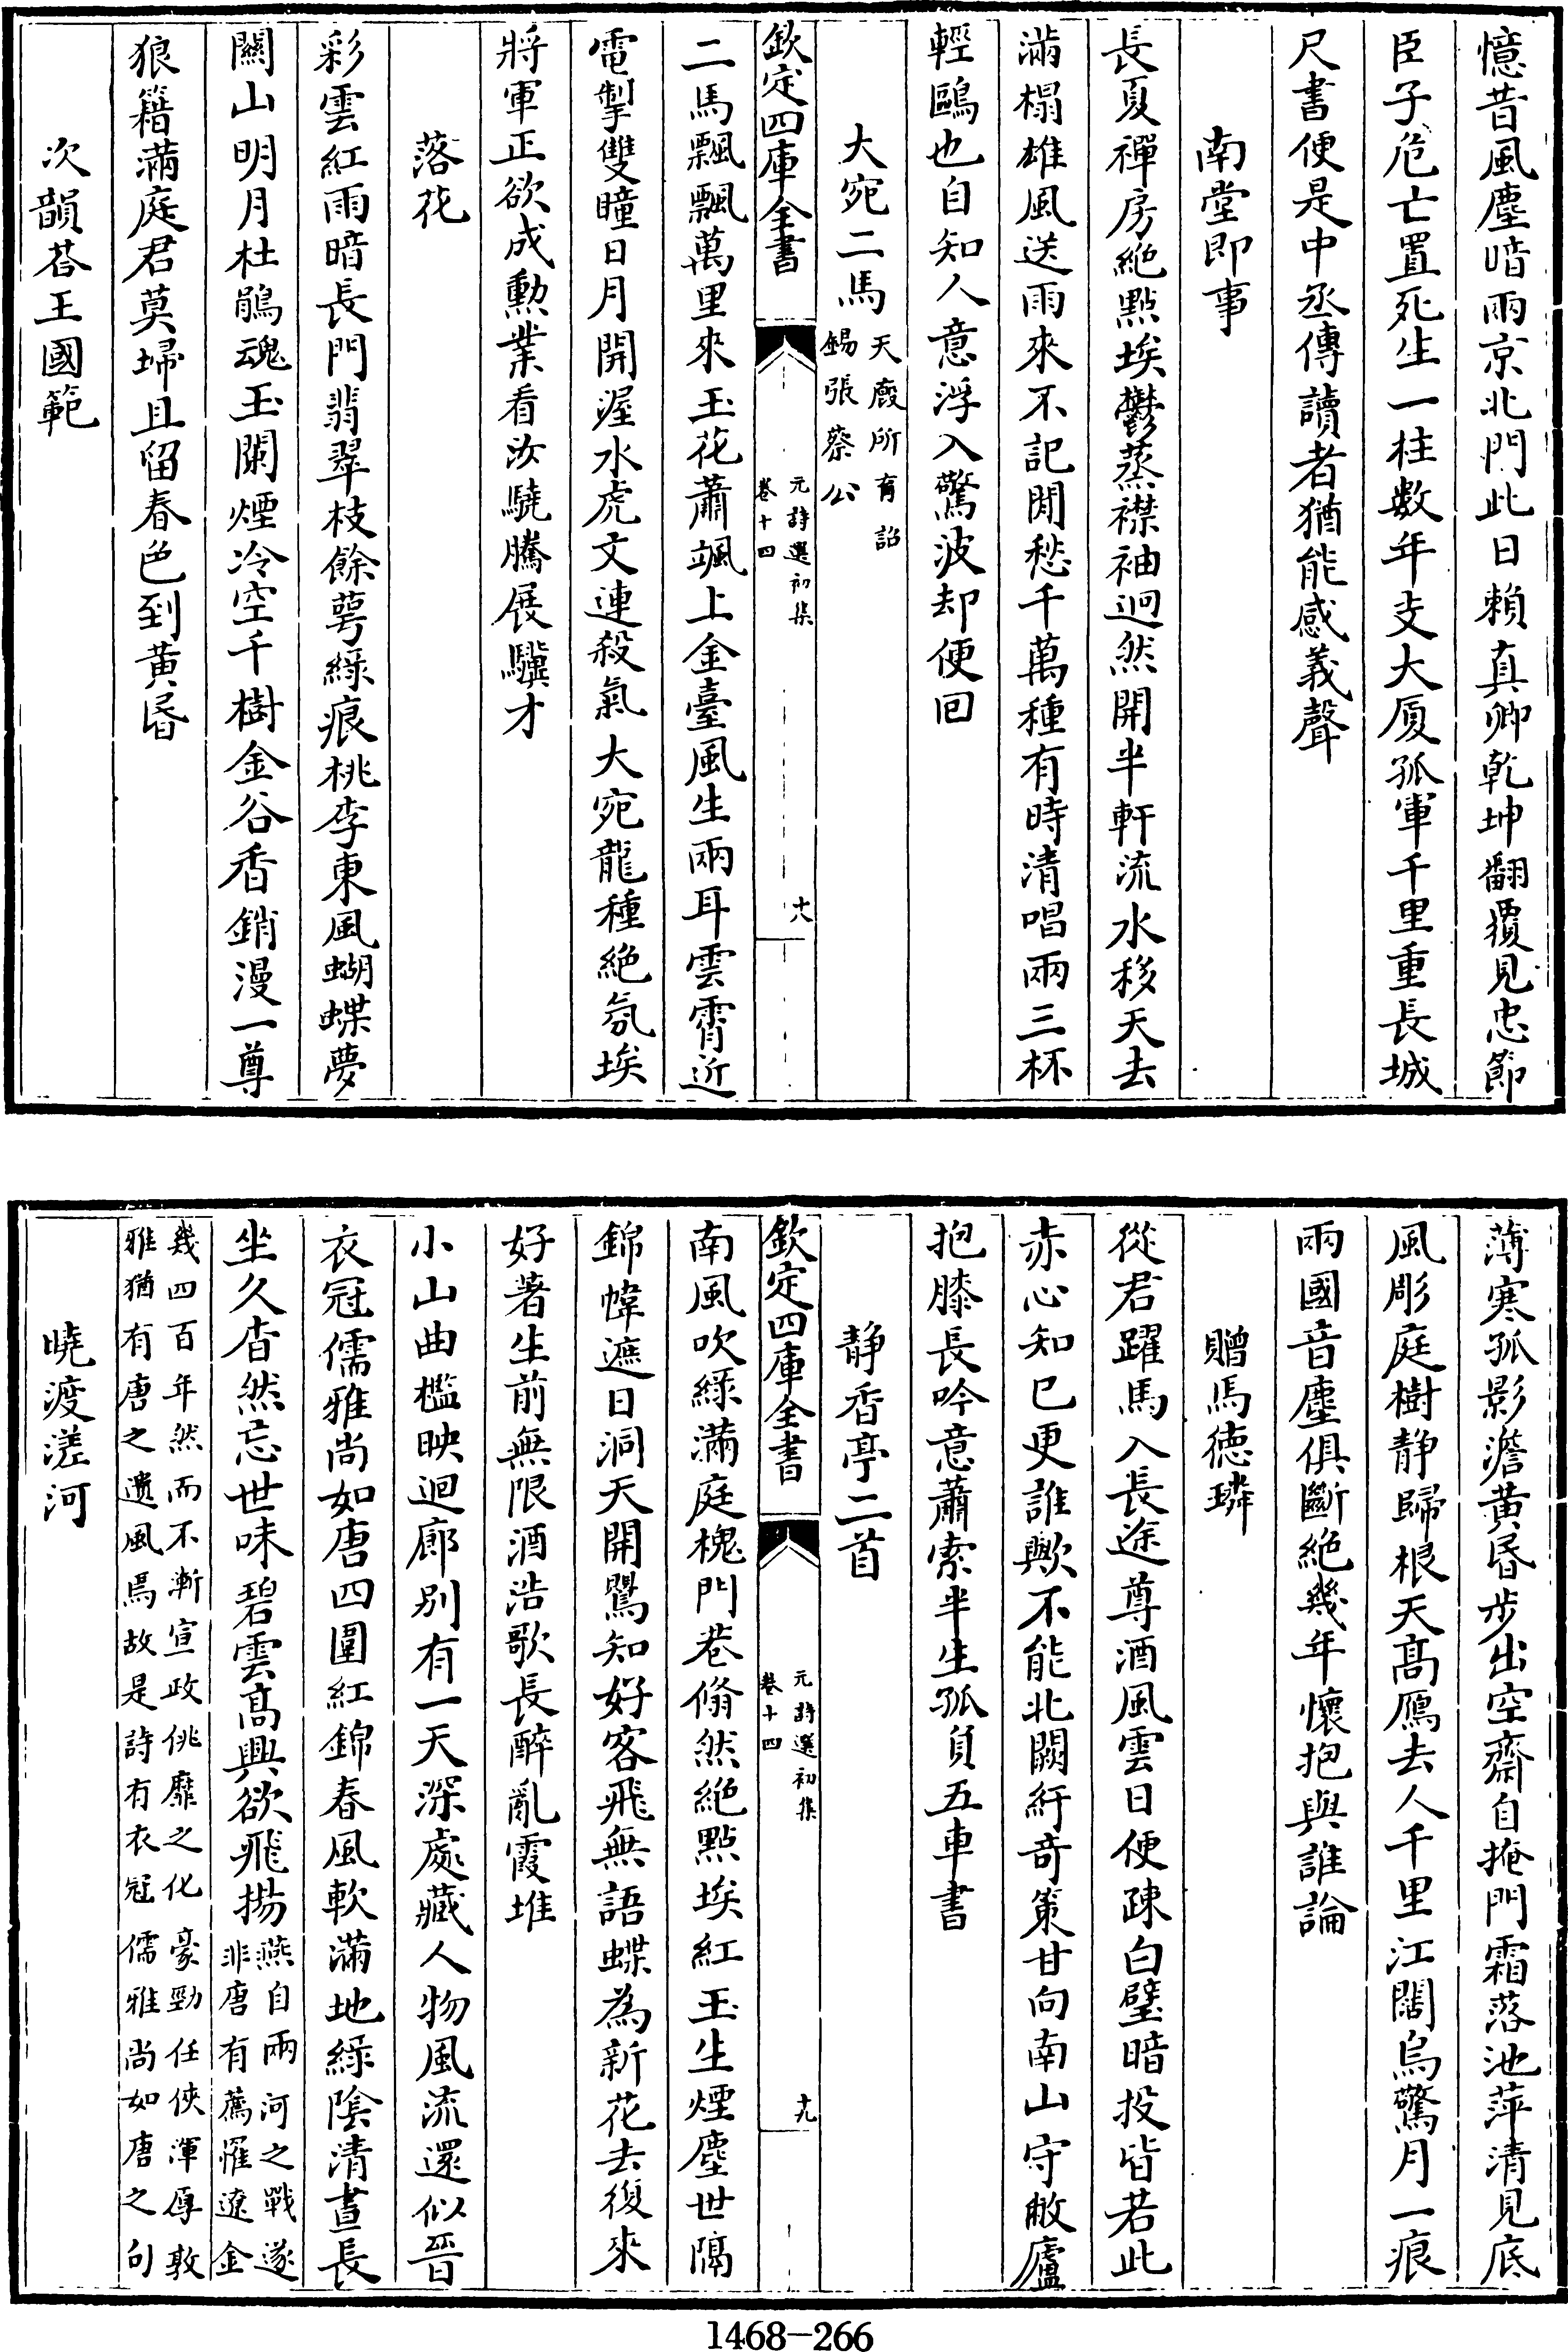 憶昔風塵暗兩京北門此日賴真卿乾坤翻覆見忠節
臣子危亡置死生一柱數年支大厦孤軍千里重長城
尺書便是中丞傳讀者猶能感義聲
南堂即事
長夏禪房絶點埃鬱蒸襟袖迥然開半軒流水移天去
滿榻雄風送雨來不記閒愁千萬種有時清唱兩三杯
輕鷗也自知人意浮入驚波却便回
大宛二馬天廐所育詔
錫張蔡公
欽定四庫全書
元詩選初集
卷十四
十八
二馬飄飄萬里來玉花蕭颯上金臺風生兩耳雲霄近
電掣雙瞳日月開渥水虎文連殺氣大宛龍種絶氛埃
將軍正欲成勲業看汝驍騰展驥才
落花
彩雲紅雨暗長門翡翠枝餘萼緑痕桃李東風蝴蝶夢
關山明月杜鵑魂玉闌煙冷空千樹金谷香銷漫一尊
狼籍滿庭君莫埽且留春色到黄昏
次韻荅王國範
薄寒孤影澹黄昏步出空齋自掩門霜落池萍清見底
風彫庭樹静歸根天髙鴈去人千里江闊烏驚月一痕
兩國音塵俱斷絶幾年懷抱與誰論
贈馬徳璘
從君躍馬入長途尊酒風雲日便疎白璧暗投皆若此
赤心知已更誰歟不能北闕紆竒策甘向南山守敝廬
抱膝長吟意蕭索半生孤負五車書
静香亭二首
欽定四庫全書
元詩選初集
卷十四
十九
南風吹緑滿庭槐門巷翛然絶點埃紅玉生煙塵世隔
錦幃遮日洞天開鸎知好客飛無語蝶為新花去復來
好著生前無限酒浩歌長醉亂霞堆
小山曲檻映迴廊别有一天深處藏人物風流還似晉
衣冠儒雅尚如唐四圍紅錦春風軟滿地緑陰清晝長
坐久杳然忘世味碧雲髙興欲飛揚燕自兩河之戰遂
非唐有薦罹遼金
幾四百年然而不漸宣政佻靡之化豪勁任俠渾厚敦
雅猶有唐之遺風焉故是詩有衣冠儒雅尚如唐之句
曉渡滹河
1468-266